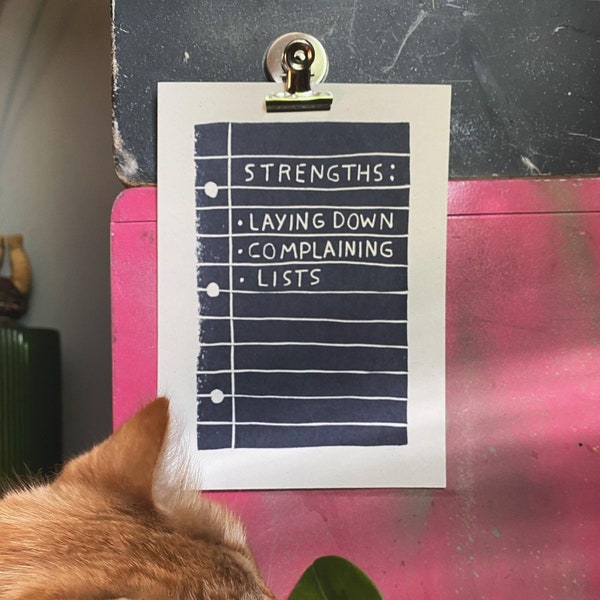 STRENGTHS:
• LAYING DOWN
• COMPLAINING
• LISTS